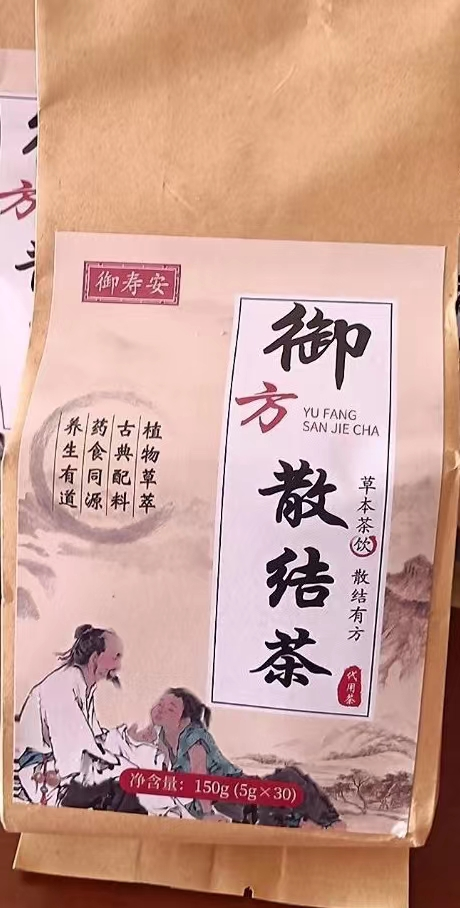 御寿安
御
方
YU FANG
SAN JIE CHA
散
结
茶
草本茶饮
散结有方
代用茶
植物草萃
古典配料
药食同源
养生有道
净含量：150g (5g×30)
方